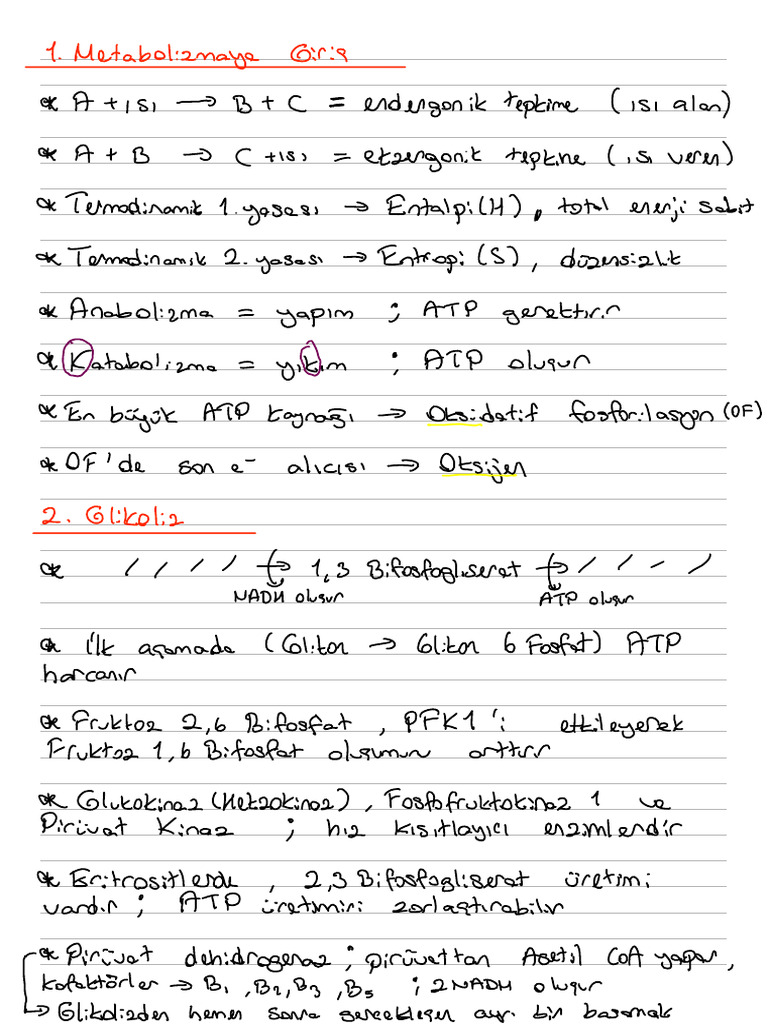 1. Metabolizmaya Giriş
* A + ısı → B + C = endergonik tepkime (ısı alan)
* A + B → C + ısı = ekzergonik tepkime (ısı veren)
* Termodinamik 1. yasası → Entalpi (H), total enerji sabit
* Termodinamik 2. yasası → Entropi (S), düzensizlik
* Anabolizma = yapım ; ATP gerektirir
* Katabolizma = yıkım ; ATP oluşur
* En büyük ATP kaynağı → Oksidatif fosforilasyon (OF)
* OF'de son e⁻ alıcısı → Oksijen
2. Glikoliz
* / / / / → 1,3 Bifosfogliserat → / / - /
NADH oluşur ATP oluşur
* İlk aşamada (Glikoz → Glikoz 6 Fosfat) ATP
harcanır
* Fruktoz 2,6 Bifosfat, PFK1'i etkileyerek
Fruktoz 1,6 Bifosfat oluşumun arttırır
* Glukokinaz (Hekzokinaz), Fosfofruktokinaz 1 ve
Pirüvat Kinaz ; hız kısıtlayıcı enzimlerdir
* Eritrositlerde, 2,3 Bifosfogliserat üretimi
vardır ; ATP üretimini zorlaştırabilir
* Pirüvat dehidrogenaz ; pirüvattan Asetil CoA yapar,
kofaktörler → B1, B2, B3, B5 ; 2NADH oluşur
→ Glikolizden hemen sonra gerçekleşen ayrı bir basamak